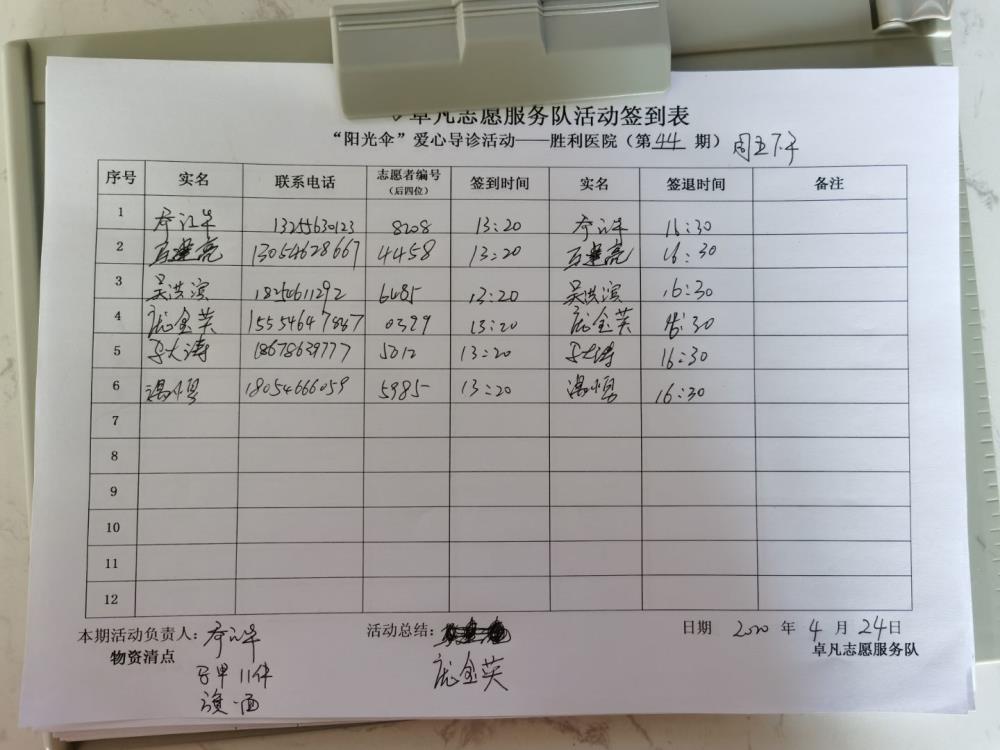 卓凡志愿服务队活动签到表
“阳光伞”爱心导诊活动——胜利医院（第 44 期） 周五下午
序号 实名 联系电话 志愿者编号（后四位） 签到时间 实名 签退时间 备注
1 13255630123 8208 13:20 16:30
2 13054628667 4458 13:20 16:30
3 吴洪滨 18254611292 6485 13:20 吴洪滨 16:30
4 庞金英 0399 13:20 庞金英 16:30
5 大涛 18678639777 5012 13:20 大涛 16:30
6 18054666059 5985 13:20 16:30
7
8
9
10
11
12
本期活动负责人： 活动总结： 日期 2020 年 4 月 24日
物资清点 庞金英 卓凡志愿服务队
马甲 11件
旗一面